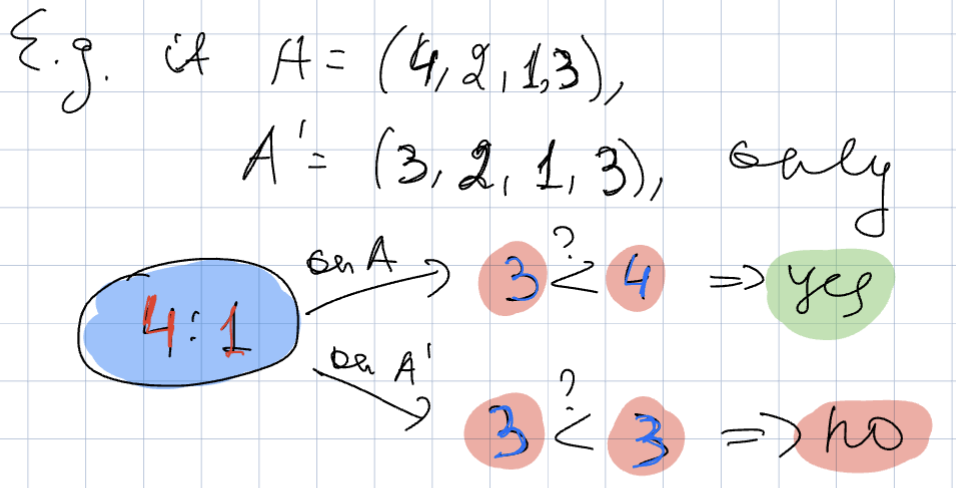 E.g. if A = (4, 2, 1, 3),
A' = (3, 2, 1, 3), only
on A 3 <? 4 => yes
4:1
on A' 3 <? 3 => no